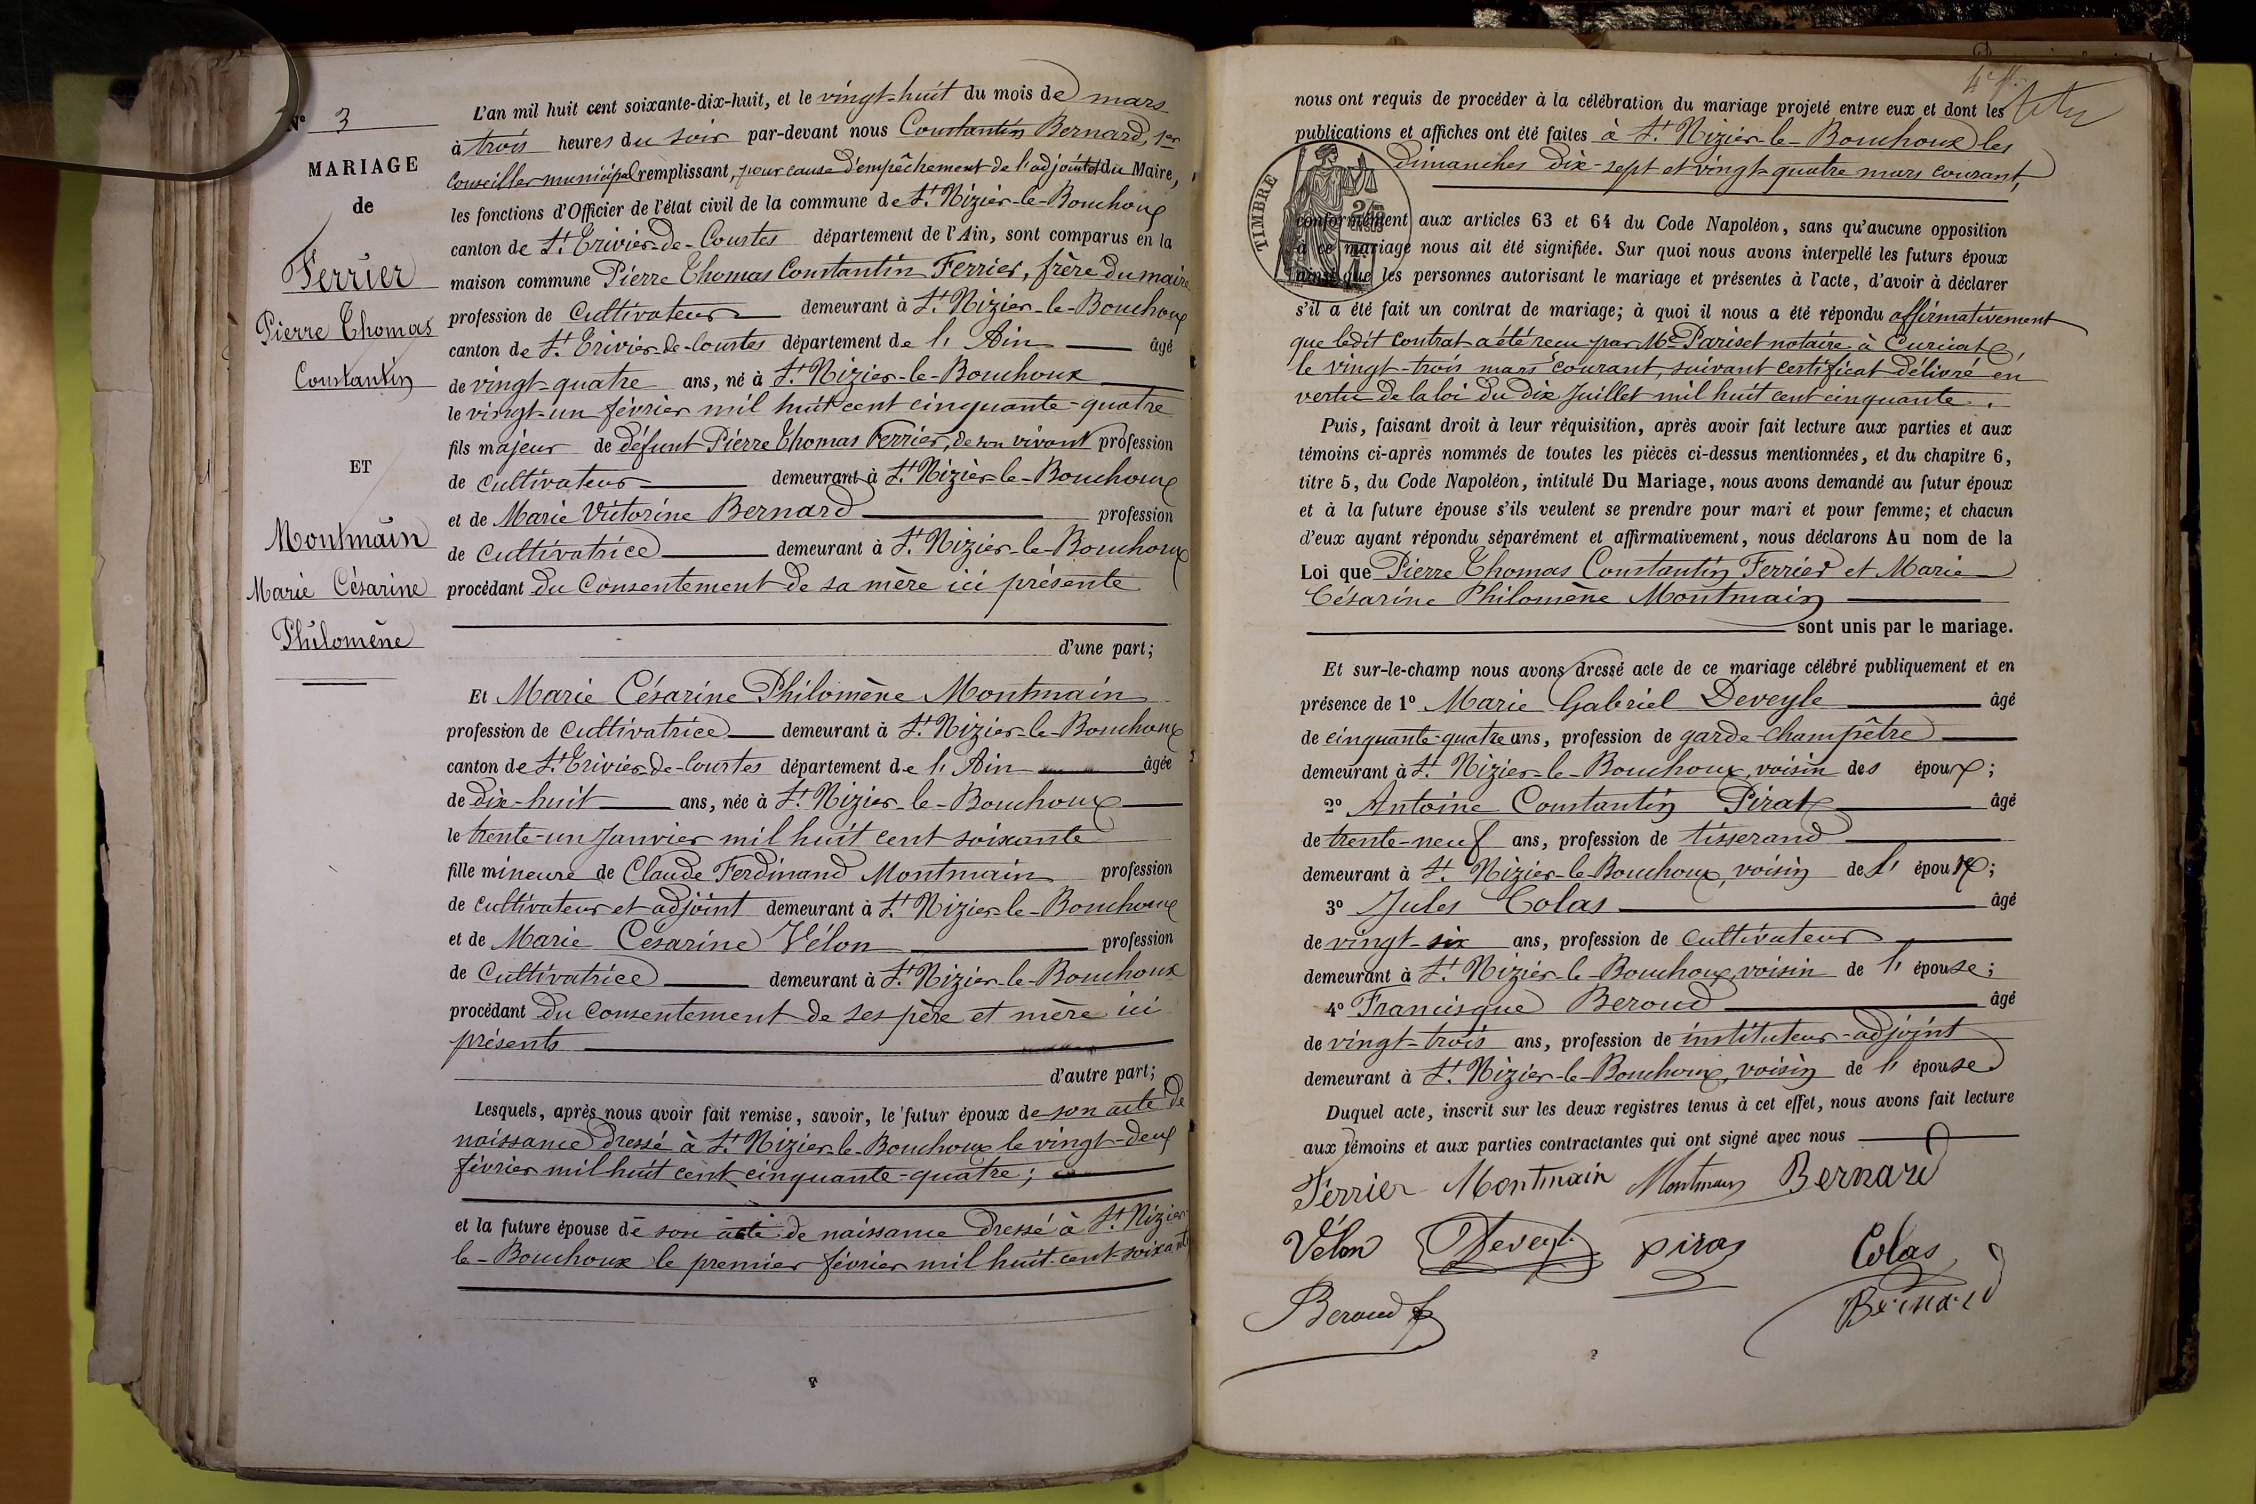 N° 3
MARIAGE
de
Ferrier
Pierre Thomas
Constantin
ET
Montmain
Marie Césarine
Philomène
L'an mil huit cent soixante-dix-huit, et le vingt-huit du mois de mars
à trois heures du soir par-devant nous Constantin Bernard, 1er
Conseiller municipal remplissant, pour cause d'empêchement de l'adjoint et du Maire,
les fonctions d'Officier de l'état civil de la commune de St Nizier-le-Bouchoux
canton de St Trivier-de-Courtes département de l'Ain, sont comparus en la
maison commune Pierre Thomas Constantin Ferrier, frère du maire
profession de cultivateur demeurant à St Nizier-le-Bouchoux
canton de St Trivier-de-Courtes département de l'Ain âgé
de vingt-quatre ans, né à St Nizier-le-Bouchoux
le vingt-un février mil huit cent cinquante-quatre
fils majeur de défunt Pierre Thomas Ferrier, de son vivant profession
de cultivateur demeurant à St Nizier-le-Bouchoux
et de Marie Victorine Bernard profession
de cultivatrice demeurant à St Nizier-le-Bouchoux
procédant du consentement de sa mère ici présente
d'une part;
Et Marie Césarine Philomène Montmain
profession de cultivatrice demeurant à St Nizier-le-Bouchoux
canton de St Trivier-de-Courtes département de l'Ain âgée
de dix-huit ans, née à St Nizier-le-Bouchoux
le trente-un Janvier mil huit cent soixante
fille mineure de Claude Ferdinand Montmain profession
de cultivateur et adjoint demeurant à St Nizier-le-Bouchoux
et de Marie Césarine Vélon profession
de cultivatrice demeurant à St Nizier-le-Bouchoux
procédant du consentement de ses père et mère ici
présents
d'autre part;
Lesquels, après nous avoir fait remise, savoir, le futur époux de son acte de
naissance dressé à St Nizier-le-Bouchoux le vingt-deux
février mil huit cent cinquante-quatre;
et la future épouse de son acte de naissance dressé à St Nizier-
le-Bouchoux le premier février mil huit-cent-soixante
4e
nous ont requis de procéder à la célébration du mariage projeté entre eux et dont les
publications et affiches ont été faites à St Nizier-le-Bouchoux les
dimanches dix-sept et vingt-quatre mars courant,
TIMBRE
conformément aux articles 63 et 64 du Code Napoléon, sans qu'aucune opposition
à ce mariage nous ait été signifiée. Sur quoi nous avons interpellé les futurs époux
ainsi que les personnes autorisant le mariage et présentes à l'acte, d'avoir à déclarer
s'il a été fait un contrat de mariage; à quoi il nous a été répondu affirmativement
que ledit contrat a été reçu par Me Pariset notaire à Curciat
le vingt-trois mars courant, suivant certificat délivré en
vertu de la loi du dix Juillet mil huit cent cinquante.
Puis, faisant droit à leur réquisition, après avoir fait lecture aux parties et aux
témoins ci-après nommés de toutes les pièces ci-dessus mentionnées, et du chapitre 6,
titre 5, du Code Napoléon, intitulé Du Mariage, nous avons demandé au futur époux
et à la future épouse s'ils veulent se prendre pour mari et pour femme; et chacun
d'eux ayant répondu séparément et affirmativement, nous déclarons Au nom de la
Loi que Pierre Thomas Constantin Ferrier et Marie
Césarine Philomène Montmain
sont unis par le mariage.
Et sur-le-champ nous avons dressé acte de ce mariage célébré publiquement et en
présence de 1° Marie Gabriel Deveyle âgé
de cinquante-quatre ans, profession de garde-champêtre
demeurant à St Nizier-le-Bouchoux, voisin des époux;
2° Antoine Constantin Pirat âgé
de trente-neuf ans, profession de tisserand
demeurant à St Nizier-le-Bouchoux, voisin de l'époux;
3° Jules Colas âgé
de vingt-six ans, profession de cultivateur
demeurant à St Nizier-le-Bouchoux, voisin de l'épouse;
4° Francisque Beroud âgé
de vingt-trois ans, profession de instituteur-adjoint
demeurant à St Nizier-le-Bouchoux, voisin de l'épouse
Duquel acte, inscrit sur les deux registres tenus à cet effet, nous avons fait lecture
aux témoins et aux parties contractantes qui ont signé avec nous
Ferrier Montmain Montmain Bernard
Vélon Deveyle Piras Colas
Beroud Bernard